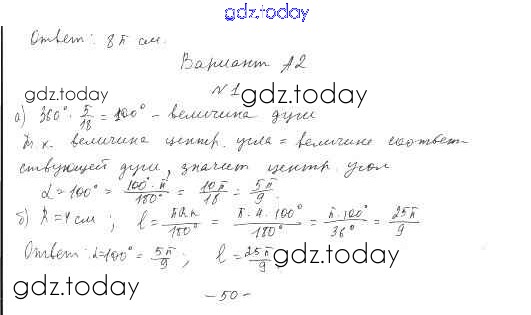 gdz.today
Ответ: 8π см.
Вариант А2
gdz.today
№1
gdz.today
а) 360° · 5/18 = 100° - величина дуги
Т. к. величина центр. угла = величине соответ-
ствующей дуги, значит центр. угол
α = 100° = 100° · π/180° = 10π/18 = 5π/9.
б) R = 4 см; l = πRn/180° = π · 4 · 100°/180° = π · 100°/36° = 25π/9
Ответ: α=100° = 5π/9; l = 25π/9
gdz.today
gdz.today
- 50 -